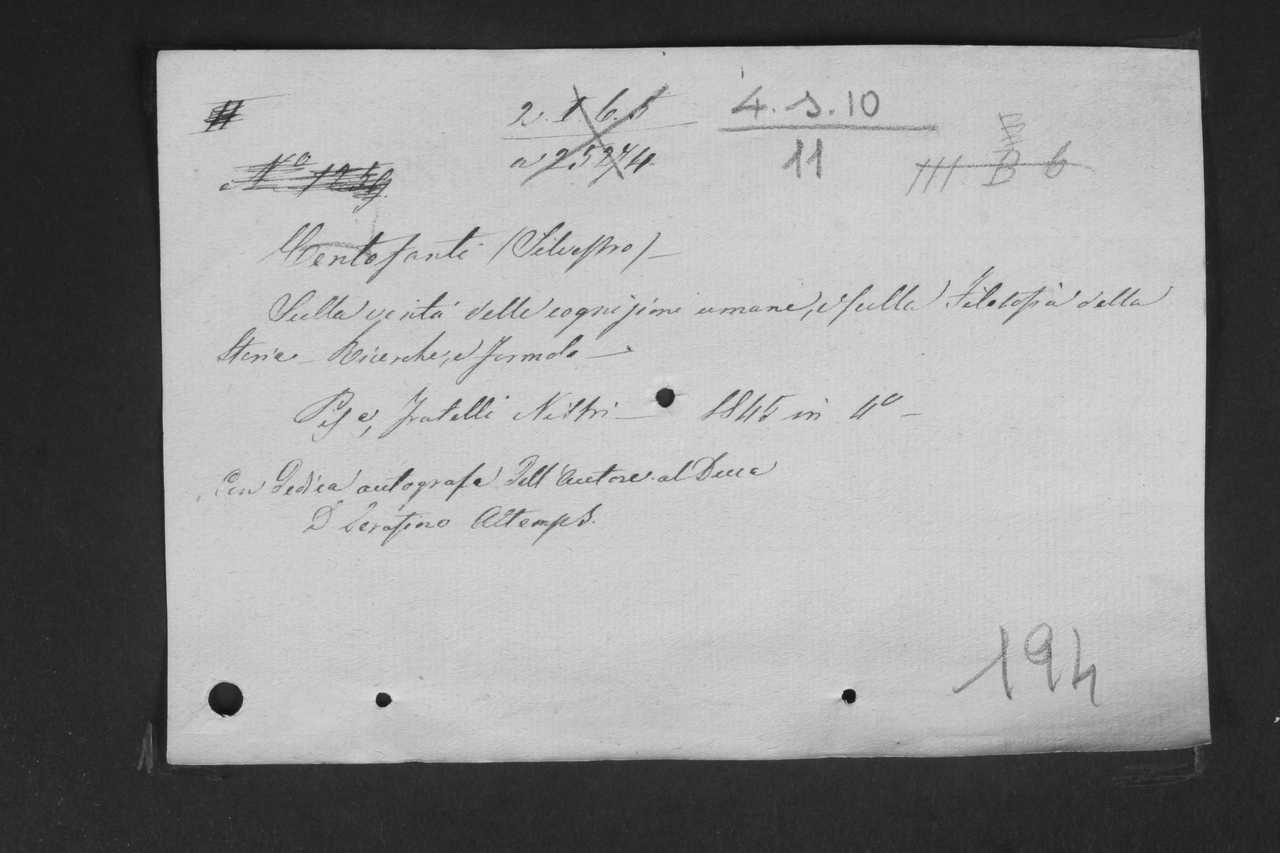 2. 1. 6. 5
a 25274
4. s. 10
11
III B 6
N.o 1259
Centofanti (Silvestro) —
Sulla verità delle cognizioni umane, e sulla Filosofia della
Storia — Ricerche, e formole —
Pisa, fratelli Nistri — 1845 in 4o —
Con dedica autografa dell'Autore al Duca
D. Serafino Altemps.
194